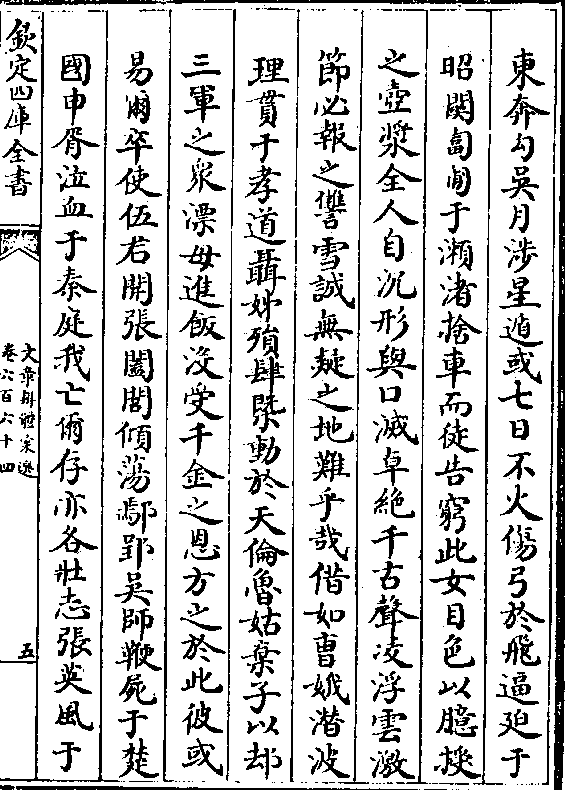 東奔勾吳月涉星遁或七日不火傷弓於飛逼廹于
昭関匍匐于瀨渚捨車而徒告窮此女目色以臆授
之壺漿全人自沉形與口滅卓絶千古聲凌浮雲激
節必報之讐雪誠無疑之地難乎哉借如曹娥潛波
理貫于孝道聶姊殞肆槩動於天倫魯姑棄子以却
三軍之衆漂母進飯没受千金之恩方之於此彼或
易爾卒使伍君開張闔閭傾蕩鄢郢吳師鞭屍于楚
國申胥泣血于秦庭我亡爾存亦各壯志張英風于
欽定四庫全書
文章辨體彚選
卷六百六十四
五